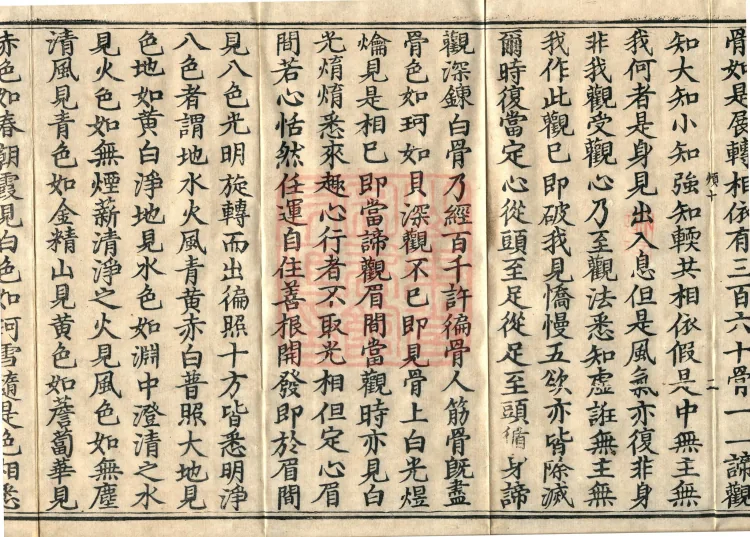 骨如是展轉相依有三百六十骨一一諦觀
知大知小知強知輭共相依假是中無主無
我何者是身見出入息但是風氣亦復非身
非我觀受觀心乃至觀法悉知虛誑無主無
我作此觀已即破我見憍慢五欲亦皆除滅
爾時復當定心從頭至足從足至頭循身諦
觀深鍊白骨乃經百千許徧骨人筋骨旣盡
骨色如珂如貝深觀不已即見骨上白光煜
爚見是相已即當諦觀眉間當觀時亦見白
光焴焴悉來趣心行者不取光相但定心眉
間若心恬然任運自住善根開發即於眉間
見八色光明旋轉而出徧照十方皆悉明淨
八色者謂地水火風青黃赤白普照大地見
色地如黃白淨地見水色如淵中澄清之水
見火色如無煙薪清淨之火見風色如無塵
清風見青色如金精山見黃色如薝蔔華見
赤色如春朝霞見白色如珂雪隨是色相悉
傾十
二